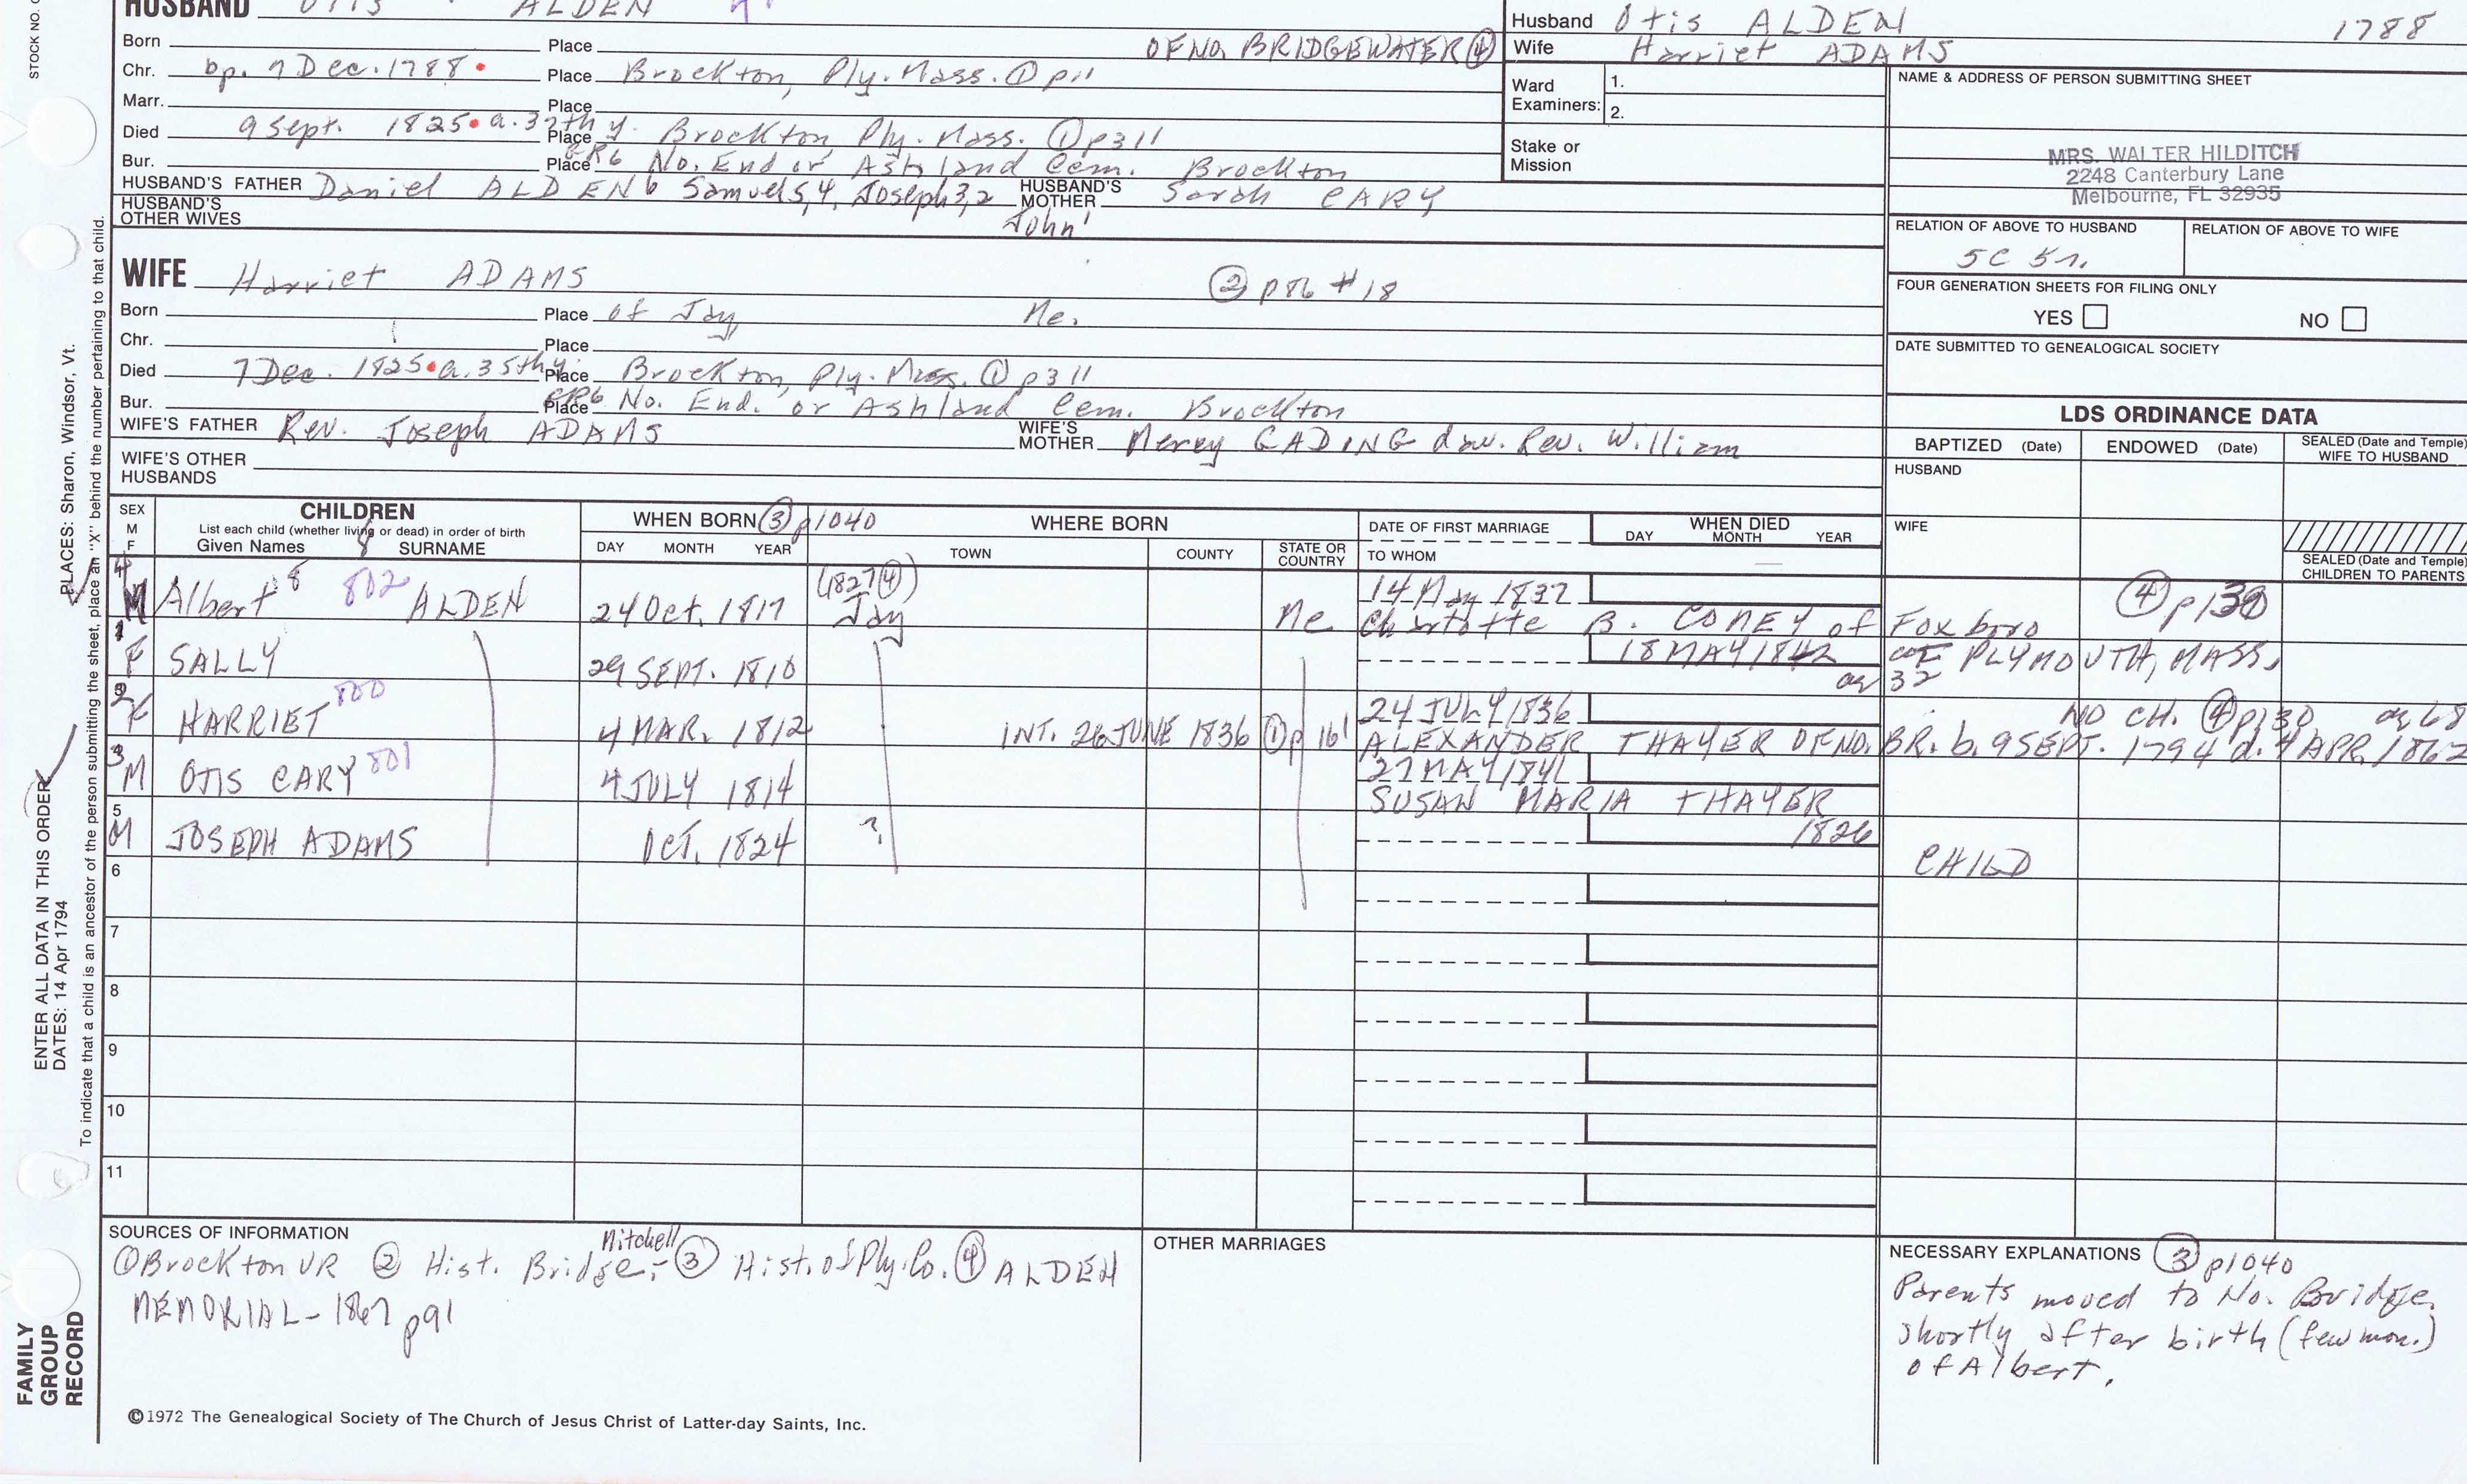 HUSBAND Otis ALDEN
Husband Otis ALDEN 1788
Wife Harriet ADAMS
Born Place OF NO. BRIDGEWATER ④
Chr. bp. 7 Dec. 1788 Place Brockton, Ply. Mass. ① p11
Marr. Place
Died 9 Sept. 1825 a. 37th y. Place Brockton, Ply. Mass. ① p311
Bur. Place GR6 No. End or Ashland Cem. Brockton
HUSBAND'S FATHER Daniel ALDEN 6 Samuel 5,4, Joseph 3,2 John 1 HUSBAND'S MOTHER Sarah CARY
HUSBAND'S OTHER WIVES
Ward Examiners: 1.
2.
Stake or Mission
NAME & ADDRESS OF PERSON SUBMITTING SHEET
MRS. WALTER HILDITCH
2248 Canterbury Lane
Melbourne, FL 32935
RELATION OF ABOVE TO HUSBAND RELATION OF ABOVE TO WIFE
5C 5r.
FOUR GENERATION SHEETS FOR FILING ONLY
YES NO
DATE SUBMITTED TO GENEALOGICAL SOCIETY
WIFE Harriet ADAMS ② p86 #18
Born Place of Jay, Me.
Chr. Place
Died 7 Dec. 1825 a. 35th y. Place Brockton, Ply. Mass. ① p311
Bur. Place GR6 No. End. or Ashland Cem. Brockton
WIFE'S FATHER Rev. Joseph ADAMS WIFE'S MOTHER Mercy GADING dau. Rev. William
WIFE'S OTHER HUSBANDS
LDS ORDINANCE DATA
BAPTIZED (Date) ENDOWED (Date) SEALED (Date and Temple) WIFE TO HUSBAND
HUSBAND
WIFE
SEALED (Date and Temple) CHILDREN TO PARENTS
SEX M F CHILDREN WHEN BORN ③ p1040 WHERE BORN DATE OF FIRST MARRIAGE WHEN DIED
List each child (whether living or dead) in order of birth
Given Names SURNAME DAY MONTH YEAR TOWN COUNTY STATE OR COUNTRY TO WHOM DAY MONTH YEAR
4 M Albert 8 802 ALDEN 24 Oct. 1817 (1827 ④) Jay Me 14 May 1837 ④ p130
Charlotte B. CONEY of Foxboro
1 F SALLY 29 SEPT. 1810 18 MAY 1842 OF PLYMOUTH, MASS.
ag 32
2 F HARRIET 800 4 MAR. 1812 INT. 26 JUNE 1836 ① p161 24 JULY 1836 NO CH. ④ p130 ag 68
ALEXANDER THAYER OF NO. BR. b. 9 SEPT. 1794 d. 4 APR. 1862
3 M OTIS CARY 801 4 JULY 1814 27 MAY 1841
SUSAN MARIA THAYER
5 M JOSEPH ADAMS OCT. 1824 ? 1826 CHILD
6
7
8
9
10
11
SOURCES OF INFORMATION
① Brockton VR ② Hist. Bridge, Mitchell ③ Hist. of Ply. Co. ④ ALDEN
MEMORIAL - 1867 p91
OTHER MARRIAGES
NECESSARY EXPLANATIONS ③ p1040
Parents moved to No. Bridge.
shortly after birth (few mon.)
of Albert.
©1972 The Genealogical Society of The Church of Jesus Christ of Latter-day Saints, Inc.
STOCK NO.
PLACES: Sharon, Windsor, Vt.
To indicate that a child is an ancestor of the person submitting the sheet, place an "X" behind the number pertaining to that child.
ENTER ALL DATA IN THIS ORDER
DATES: 14 Apr 1794
FAMILY
GROUP
RECORD